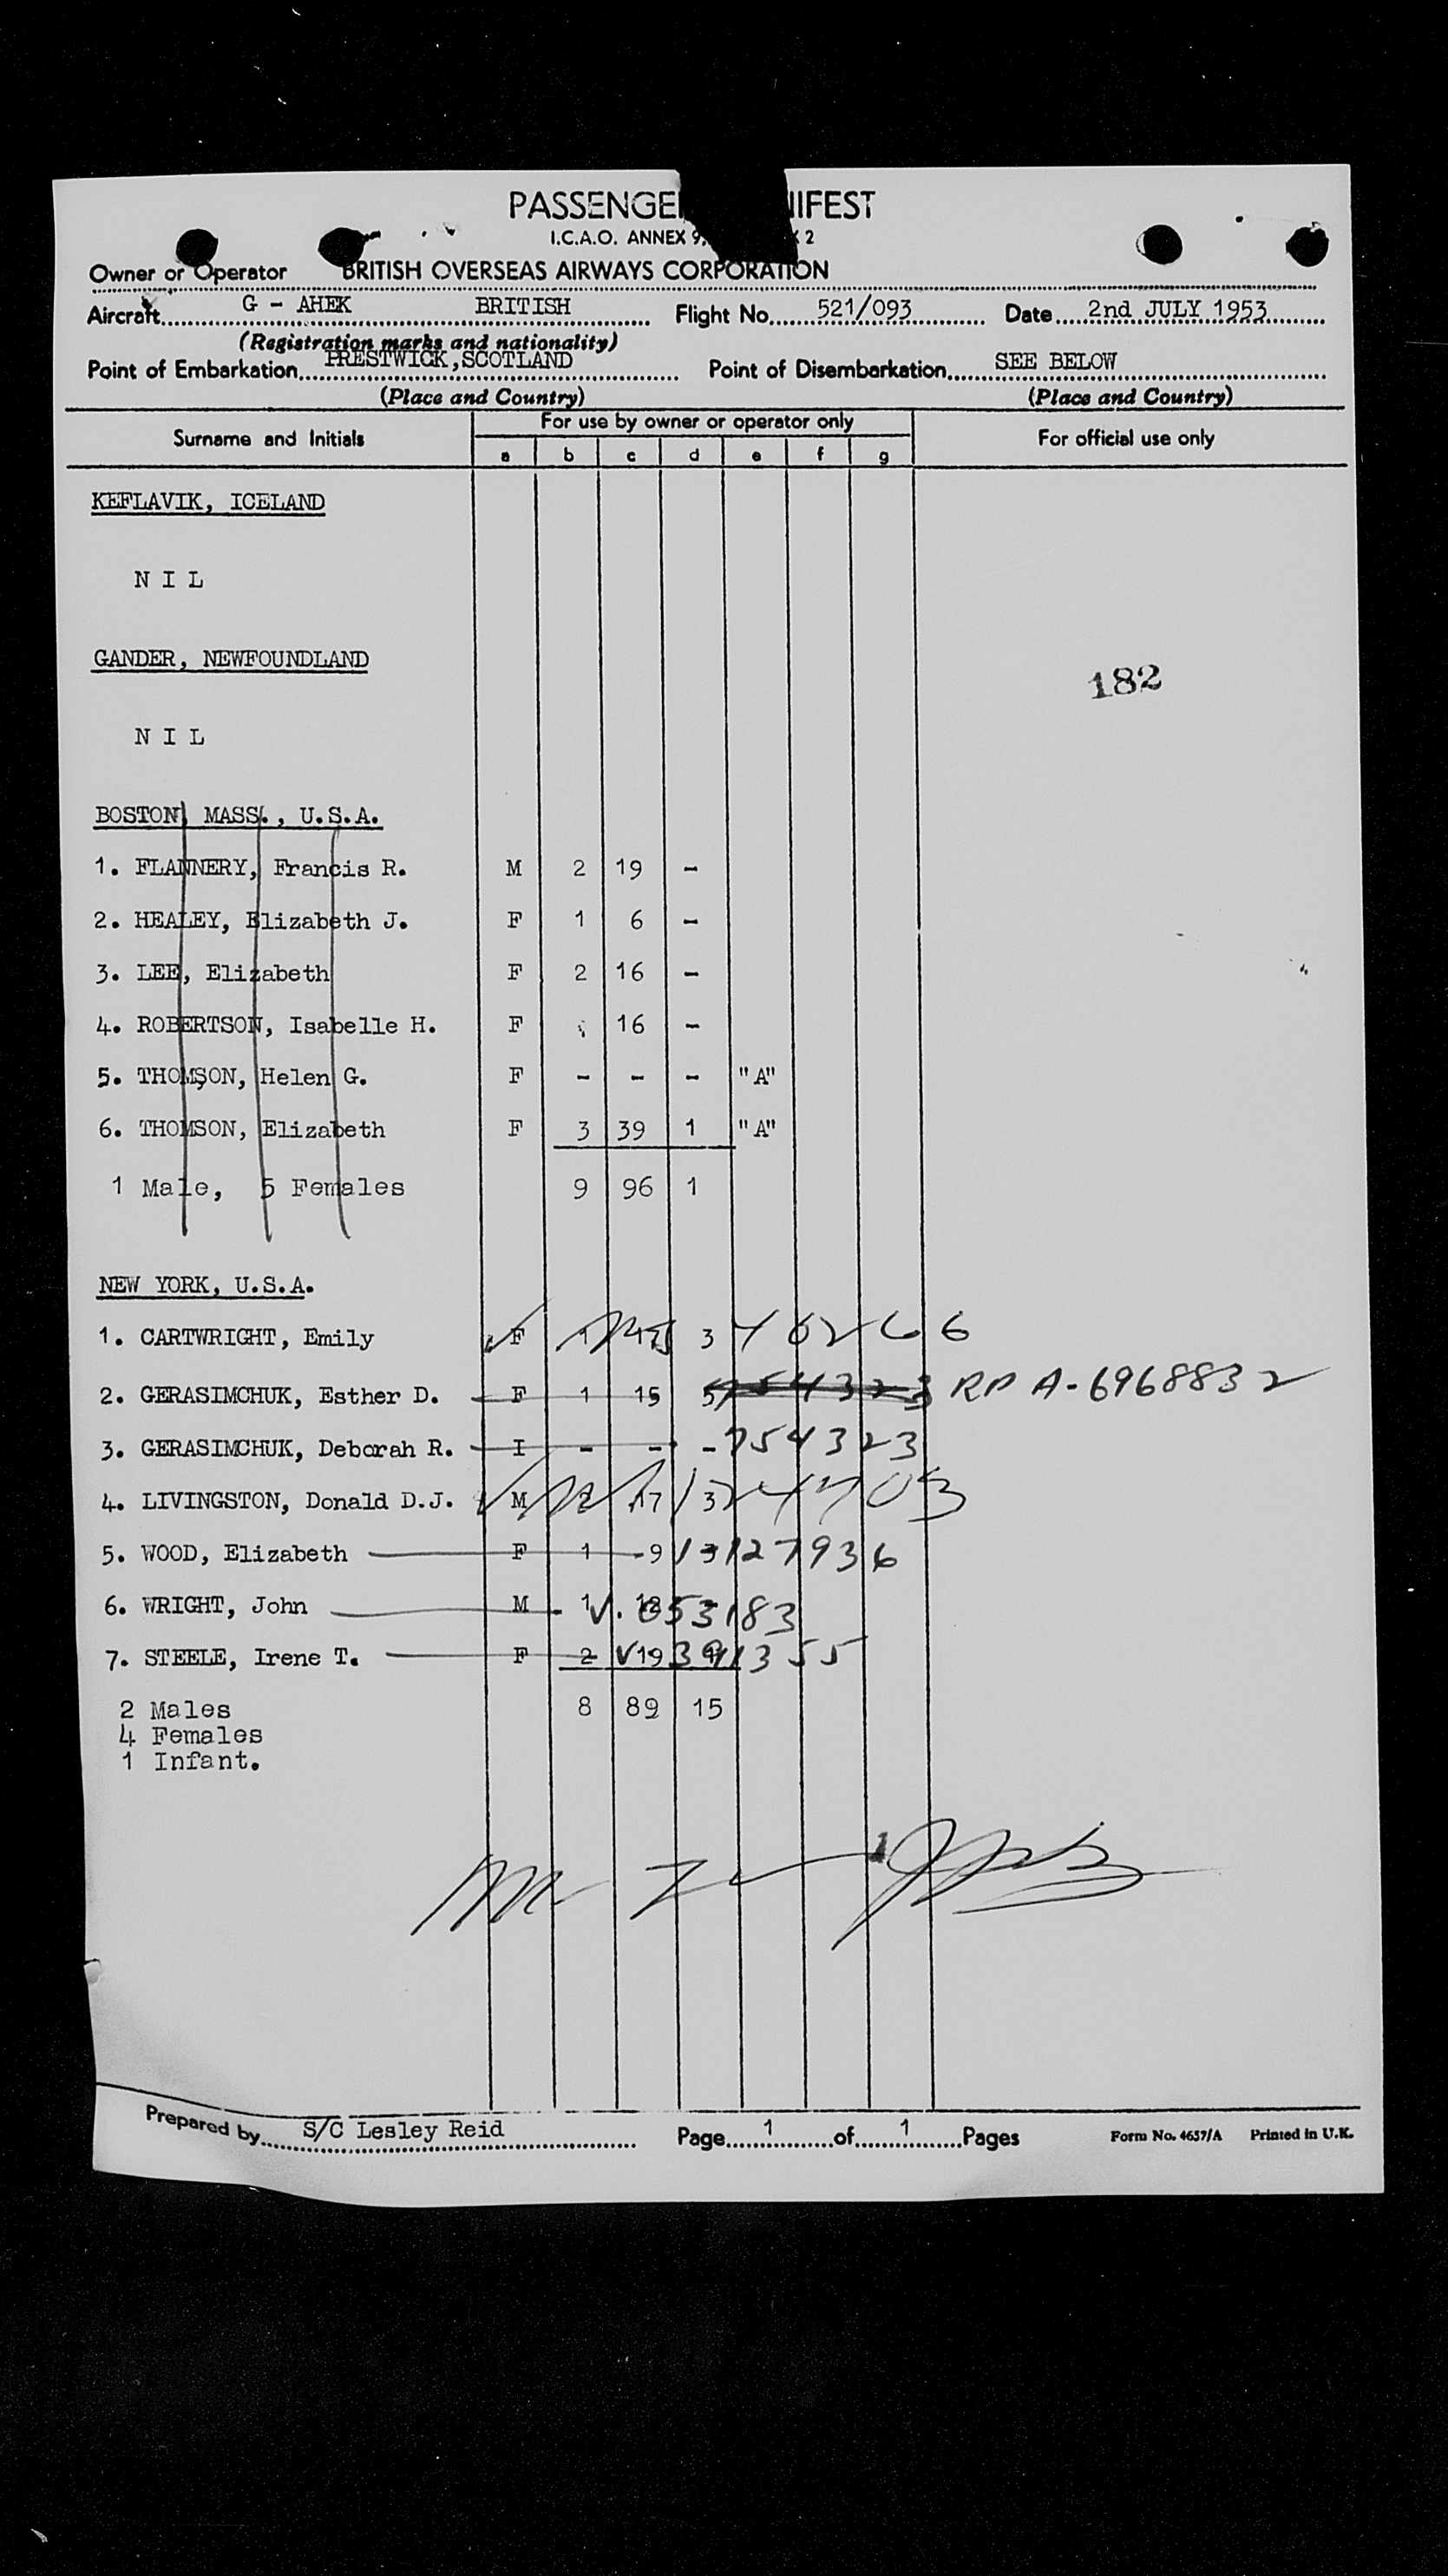 PASSENGE IIFEST
I.C.A.O. ANNEX 9, 2
Owner or Operator BRITISH OVERSEAS AIRWAYS CORPORATION
Aircraft G - AHEK BRITISH Flight No. 521/093 Date 2nd JULY 1953
(Registration marks and nationality)
Point of Embarkation PRESTWICK,SCOTLAND Point of Disembarkation SEE BELOW
(Place and Country) (Place and Country)
Surname and Initials For use by owner or operator only For official use only
a b c d e f g
KEFLAVIK, ICELAND
N I L
GANDER, NEWFOUNDLAND
182
N I L
BOSTON, MASS., U.S.A.
1. FLANNERY, Francis R. M 2 19 -
2. HEALEY, Elizabeth J. F 1 6 -
3. LEE, Elizabeth F 2 16 -
4. ROBERTSON, Isabelle H. F 16 -
5. THOMSON, Helen G. F - - - "A"
6. THOMSON, Elizabeth F 3 39 1 "A"
1 Male, 5 Females 9 96 1
NEW YORK, U.S.A.
1. CARTWRIGHT, Emily F 1 3
2. GERASIMCHUK, Esther D. F 1 15 5 754323 RP A-6968832
3. GERASIMCHUK, Deborah R. I - - - 754323
4. LIVINGSTON, Donald D.J. M 2 17 3
5. WOOD, Elizabeth F 1 9 13127936
6. WRIGHT, John M 1 V. 053183
7. STEELE, Irene T. F 2 V 19 391355
2 Males 8 89 15
4 Females
1 Infant.
Prepared by S/C Lesley Reid Page 1 of 1 Pages Form No. 4637/A Printed in U.K.